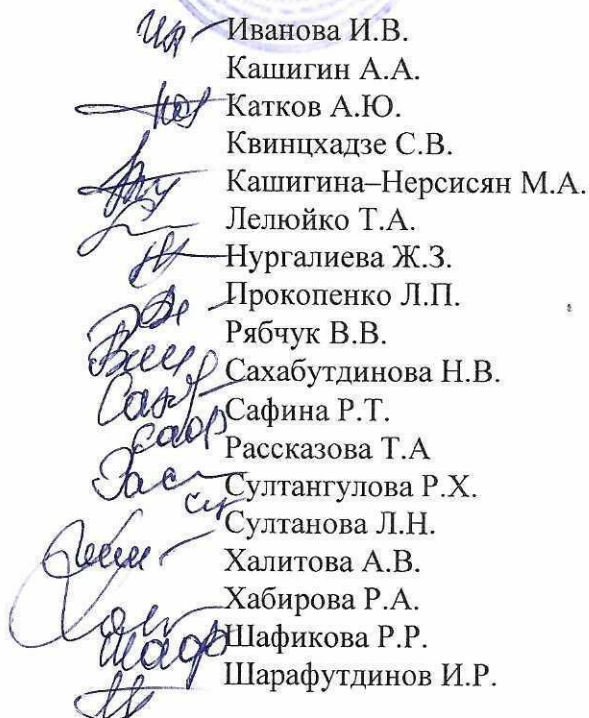 Иванова И.В.
Кашигин А.А.
Катков А.Ю.
Квинцхадзе С.В.
Кашигина–Нерсисян М.А.
Лелюйко Т.А.
Нургалиева Ж.З.
Прокопенко Л.П.
Рябчук В.В.
Сахабутдинова Н.В.
Сафина Р.Т.
Рассказова Т.А
Султангулова Р.Х.
Султанова Л.Н.
Халитова А.В.
Хабирова Р.А.
Шафикова Р.Р.
Шарафутдинов И.Р.